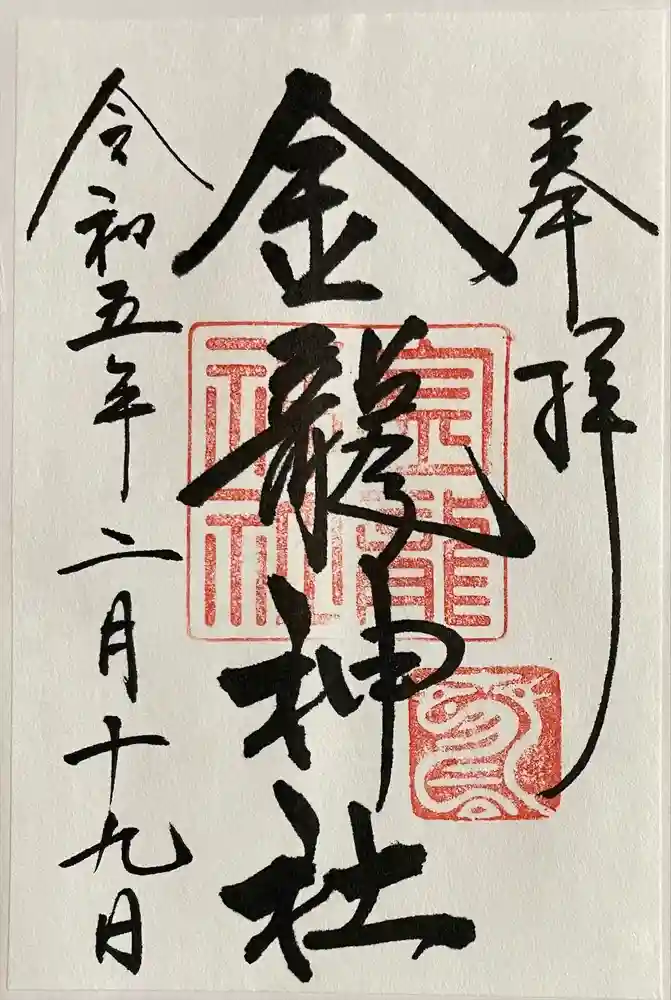 奉拝
金龍神社
金龍神社
令和五年二月十九日